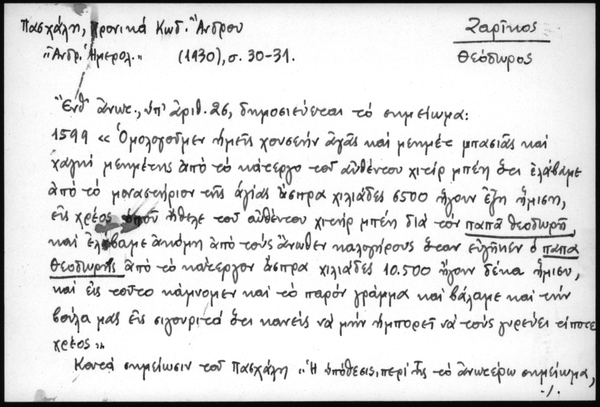 Πασχάλη, Χρονικά Κωδ. Ἄνδρου
Ζαρῖκος
"Ἀνδρ. Ἡμερολ." (1930), σ. 30-31.
Θεόδωρος
Ἔνθ' ἀνωτ., ὑπ' ἀριθ. 26, δημοσιεύεται τὸ σημείωμα:
1599 « Ὁμολογοῦμεν ἡμεῖς χουσεὴν ἀγᾶς καὶ μεημὲτ μπασιᾶς καὶ
χαγιὴ μεημέτης ἀπὸ τὸ κάτεργο τοῦ αὐθέντου χιτὴρ μπέη ὅτι ἐλάβαμε
ἀπὸ τὸ μοναστήριον τῆς ἁγίας ἄσπρα χιλιάδες 6500 ἤγουν ἕξη ἥμιση,
εἰς χρέος ὁποῦ ἤθελε τοῦ αὐθέντου χιτὴρ μπέη διὰ τὸν παπᾶ θεοδωρῆ,
καὶ ἐλάβαμε ἀκόμη ἀπὸ τοὺς ἄνωθεν καλογήρους ὅταν εὐγῆκεν ὁ παπα
θεοδωρῆς ἀπὸ τὸ κάτεργον ἄσπρα χιλιάδες 10.500 ἤγουν δέκα ἥμισυ,
καὶ εἰς τοῦτο κάμνομεν καὶ τὸ παρὸν γράμμα καὶ βάλαμε καὶ τὴν
βούλα μας εἰς σιγουριτὰ ὅτι κανεὶς νὰ μὴν ἠμπορεῖ νὰ τοὺς γυρεύει τίποτε
χρέος».
Κατὰ σημείωσιν τοῦ Πασχάλη "Ἡ ὑπόθεσις, περὶ ἧς τὸ ἀνωτέρω σημείωμα,
./.